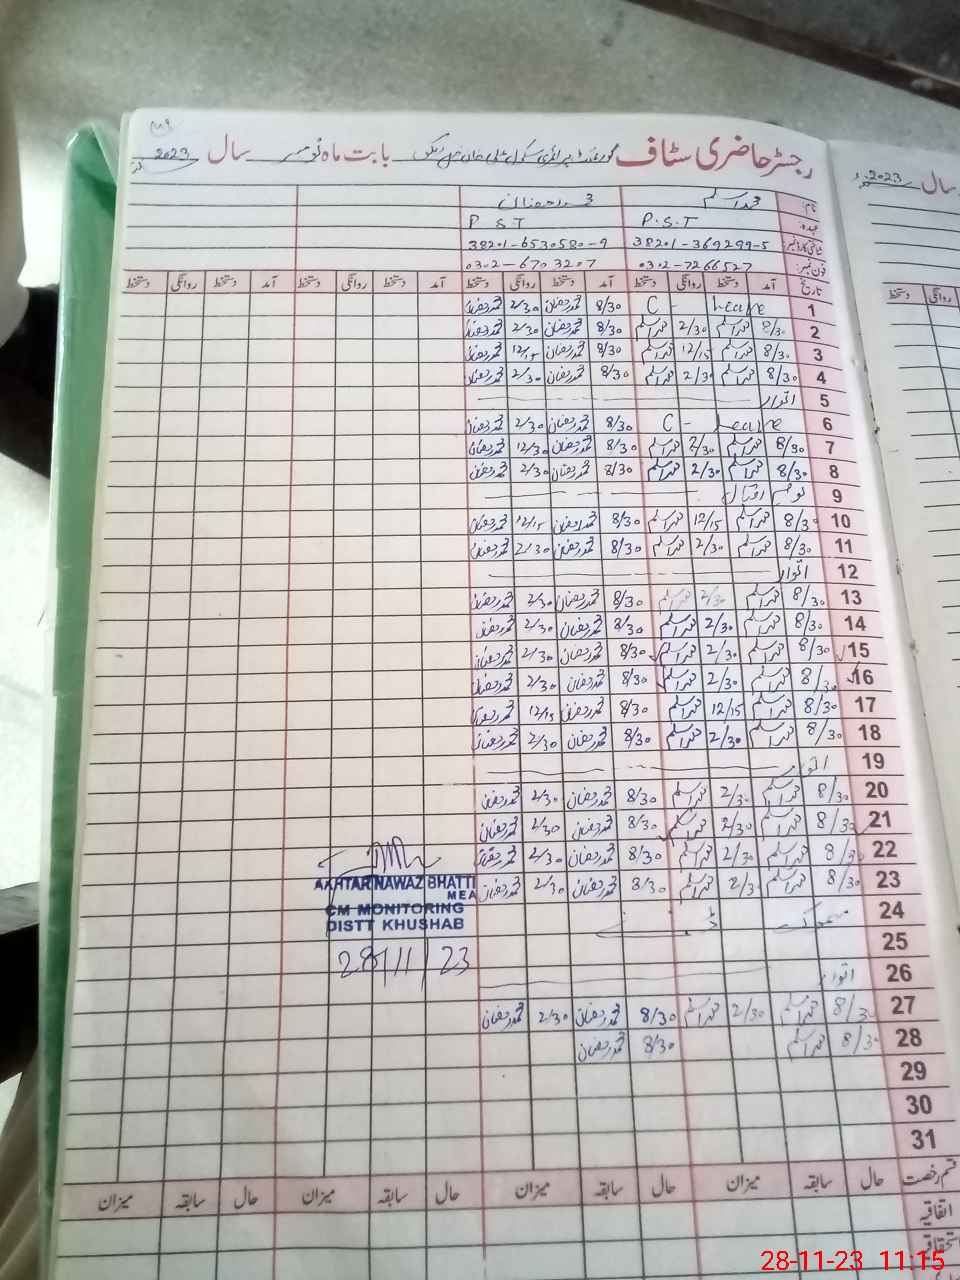 رجسٹر حاضری سٹاف گورنمنٹ پرائمری سکول علی خان بابت ماہ نومبر سال 2023
نام: محمد اسلم محمد رمضان
عہدہ P.S.T P S.T
شناختی کارڈ نمبر 38201-369299-5 38201-6530580-9
فون نمبر: 0302-7266527 0302-6703207
تاریخ آمد دستخط روانگی دستخط آمد دستخط روانگی دستخط آمد دستخط روانگی دستخط آمد دستخط روانگی دستخط
1 C - Leave 8/30 محمد رمضان 2/30 محمد رمضان
2 8/30 محمد اسلم 2/30 محمد اسلم 8/30 محمد رمضان 2/30 محمد رمضان
3 8/30 محمد اسلم 12/15 محمد اسلم 8/30 محمد رمضان 12/15 محمد رمضان
4 8/30 محمد اسلم 2/30 محمد اسلم 8/30 محمد رمضان 2/30 محمد رمضان
5 اتوار
6 C - Leave 8/30 محمد رمضان 2/30 محمد رمضان
7 8/30 محمد اسلم 2/30 محمد اسلم 8/30 محمد رمضان 12/30 محمد رمضان
8 8/30 محمد اسلم 2/30 محمد اسلم 8/30 محمد رمضان 2/30 محمد رمضان
9 اقبال
10 8/30 محمد اسلم 12/15 محمد اسلم 8/30 محمد رمضان 12/15 محمد رمضان
11 8/30 محمد اسلم 2/30 محمد اسلم 8/30 محمد رمضان 2/30 محمد رمضان
12 اتوار
13 8/30 محمد اسلم 2/30 محمد اسلم 8/30 محمد رمضان 2/30 محمد رمضان
14 8/30 محمد اسلم 2/30 محمد اسلم 8/30 محمد رمضان 2/30 محمد رمضان
15 8/30 محمد اسلم 2/30 محمد اسلم 8/30 محمد رمضان 2/30 محمد رمضان
16 8/30 محمد اسلم 2/30 محمد اسلم 8/30 محمد رمضان 2/30 محمد رمضان
17 8/30 محمد اسلم 12/15 محمد اسلم 8/30 محمد رمضان 12/15 محمد رمضان
18 8/30 محمد اسلم 2/30 محمد اسلم 8/30 محمد رمضان 2/30 محمد رمضان
19 اتوار
20 8/30 محمد اسلم 2/30 محمد اسلم 8/30 محمد رمضان 2/30 محمد رمضان
21 8/30 محمد اسلم 2/30 محمد اسلم 8/30 محمد رمضان 2/30 محمد رمضان
22 8/30 محمد اسلم 2/30 محمد اسلم 8/30 محمد رمضان 2/30 محمد رمضان
23 8/30 محمد اسلم 2/30 محمد اسلم 8/30 محمد رمضان 2/30 محمد رمضان
AKHTAR NAWAZ BHATTI
MEA
CM MONITORING
DISTT KHUSHAB
28/11/23
24 سموگ
25
26 اتوار
27 8/30 محمد اسلم 2/30 محمد اسلم 8/30 محمد رمضان 2/30 محمد رمضان
28 8/30 محمد اسلم 8/30 محمد رمضان
29
30
31
قسم رخصت حال سابقہ میزان حال سابقہ میزان حال سابقہ میزان حال سابقہ میزان
اتفاقیہ
استحقاقی
سال 2023
دستخط روانگی
28-11-23 11:15